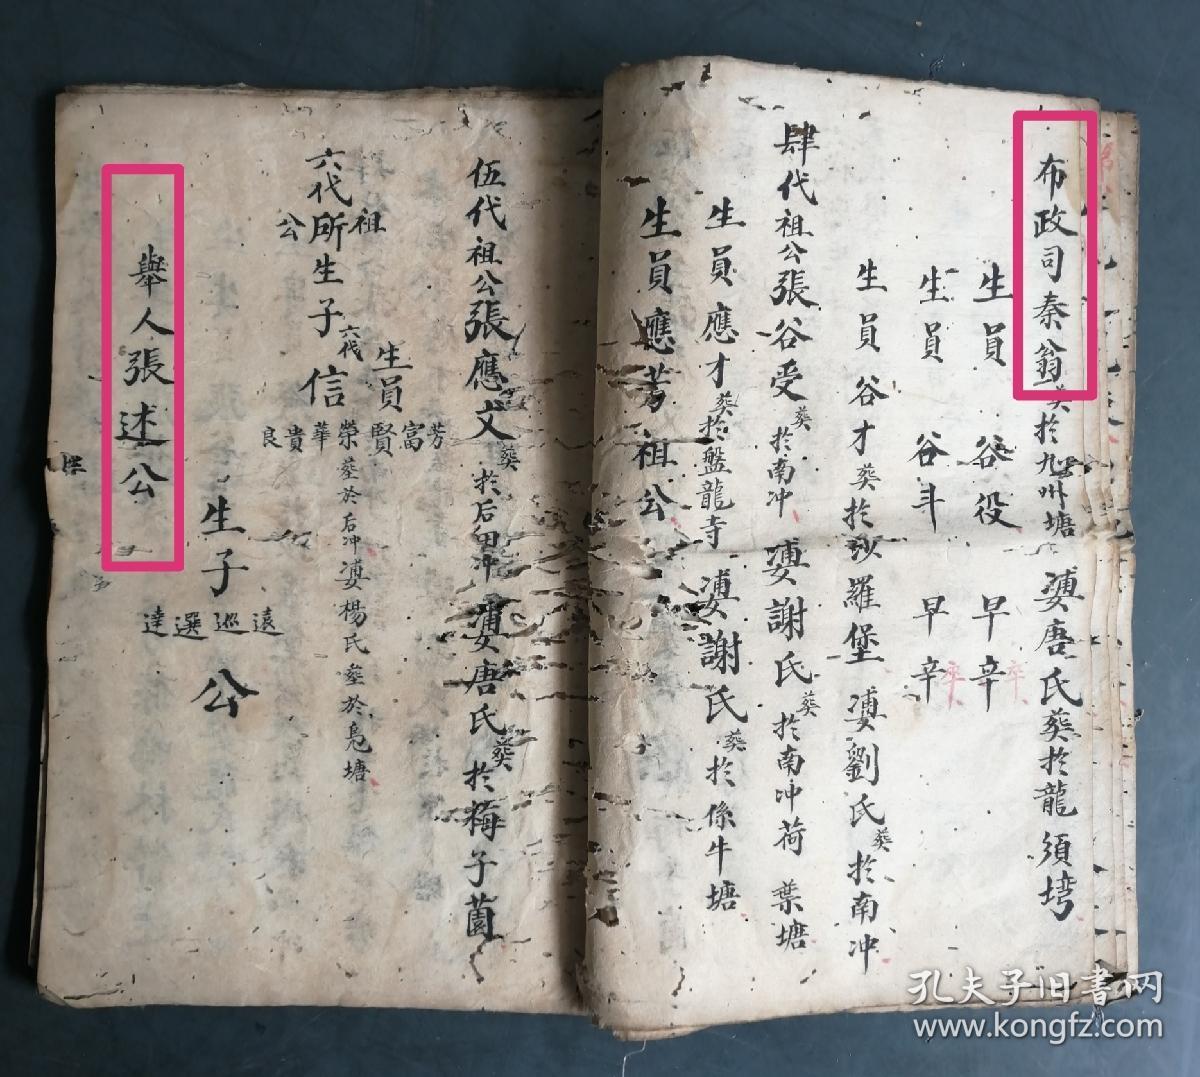 布政司秦翁葵於九州塘 㜈唐氏葵於龍須塆
生員 谷役 早辛 卒
生員 谷斗 早辛 卒
生員谷才葵於沙羅堡 㜈劉氏葵於南冲
肆代祖公張谷受葵於南冲 㜈謝氏葵於南冲荷葉塘
生員應才葵於盤龍寺 㜈謝氏葵於係牛塘
生員應芳祖公
伍代祖公張應文葵於后田冲 㜈唐氏葵於梅子薗
生員
芳富賢榮華貴良
六代祖公所生子六代信
葬於后冲 㜈楊氏塟於凫塘
生子
遠巡選達
公
舉人張述公
孔夫子旧书网
www.kongfz.com